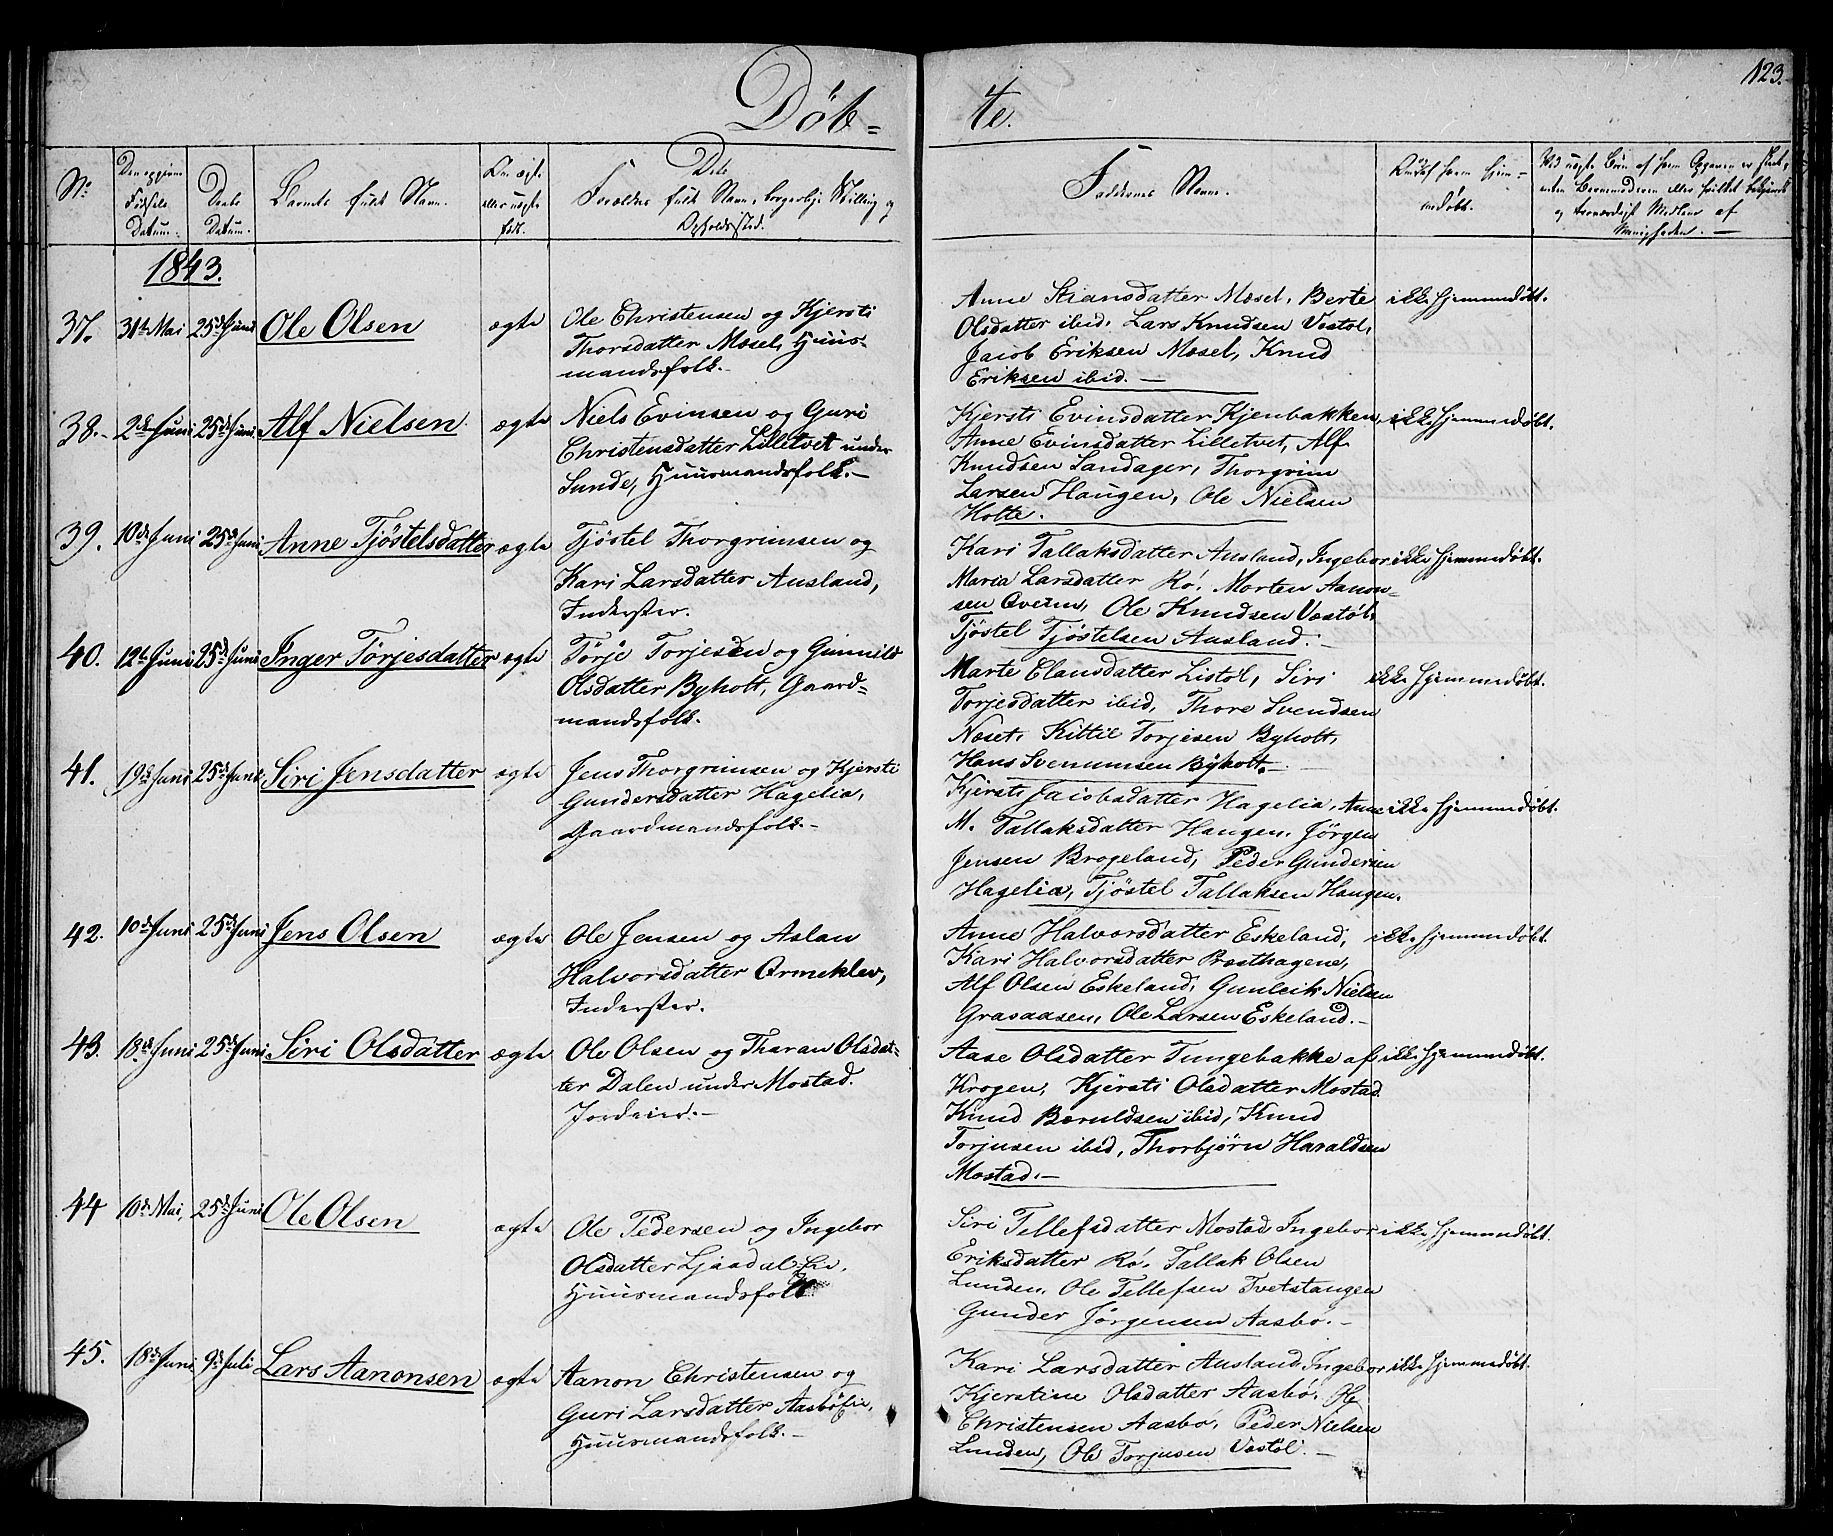 123.
Døb=
te.
No
Den opgivne Fødsels Datum.
Daabs Datum.
Barnets fulde Navn.
Om ægte eller uægte født.
Dets Forældres fulde Navn, borgerlige Stilling og Opholdssted.
Faddernes Navne.
Attest hjem=
medøbt.
og troværdigt Medlem af
Menigheden. —
1843.
37. 31te Mai 25de Juni Ole Olsen ægte
Ole Christensen og Kjersti
Thorsdatter Mæsel, Huus=
mandsfolk.—
Anne Stiansdatter Mæsel, Berte ikke hjemmedøbt.
Olsdatter ibid, Lars Knudsen Vestøl,
Jacob Eriksen Mæsel, Knud
Eriksen ibid. —
38.- 2de Juni 25de Juni Alf Nielsen. ægte
Niels Evinsen og Guri
Christensdatter Lilletvet under
Sunde, Huusmandsfolk.—
Kjersti Evinsdatter Kjenbakken, ikke hjemmedøbt.
Anne Evinsdatter Lilletvet, Alf
Knudsen Sandager, Thorgrim
Larsen Haugen, Ole Nielsen
Holte.
39. 10de Juni 25de Juni Anne Tjøstelsdatter ægte
Tjøstel Thorgrimsen og
Kari Larsdatter Ausland,
Inderster.
Kari Tallaksdatter Ausland, Ingebor ikke hjemmedøbt.
Maria Larsdatter Rø, Morten Aanon=
sen Qveim, Ole Knudsen Vestøl,
Tjøstel Tjøstelsen Ausland. —
40. 12te Juni 25de Juni Inger Torjesdatter ægte
Torje Torjesen og Gunnild
Olsdatter Byholt, Gaard=
mandsfolk.
Marte Clausdatter Listøl, Siri ikke hjemmedøbt.
Torjesdatter ibid, Thore Svendsen
Næset, Kittil Torjesen Byholt,
Hans Svenumsen Byholt. —
41. 19de Juni 25de Juni Siri Jensdatter ægte
Jens Thorgrimsen og Kjersti
Gundersdatter Hagelia,
Gaardmandsfolk.—
Kjersti Jacobsdatter Hagelia, Anne ikke hjemmedøbt.
M. Tallaksdatter Haugen, Jørgen
Jensen Brogeland, Peder Gundersen
Hagelia, Tjøstel Tallaksen Haugen.
42. 10de Juni 25de Juni Jens Olsen ægte
Ole Jensen og Aslau
Halvorsdatter Ormeklev,
Inderster.
Anne Halvorsdatter Eskeland, ikke hjemmedøbt.
Kari Halvorsdatter Præsthagene,
Alf Olsen Eskeland, Gunleik Nielsen
Grasaasen, Ole Larsen Eskeland.—
43. 18de Juni 25de Juni Siri Olsdatter ægte
Ole Olsen og Tharan Olsdat=
ter Dalen under Mostad.
Jordeier.—
Aase Olsdatter Tungebakke af ikke hjemmedøbt.
Krogen, Kjersti Olsdatter Mostad
Knud Beruldsen ibid, Knud
Torjusen ibid, Thorbjørn Haraldsen
Mostad.—
44 10de Mai, 25de Juni Ole Olsen ægte
Ole Pedersen og Ingebor
Olsdatter Ljaadal Lie,
Huusmandsfolk
Siri Tellefsdatter Mostad, Ingebor ikke hjemmedøbt.
Eriksdatter Rø, Tallak Olsen
Lunden, Ole Tellefsen Tvetstangen
Gunder Jørgensen Aasbø. —
45. 18de Juni 9de Juli Lars Aanonsen ægte
Aanon Christensen og
Guri Larsdatter Aasbølie,
Huusmandsfolk.—
Kari Larsdatter Ausland, Ingebor ikke hjemmedøbt.
Kjerstine Olsdatter Aasbø, Ole
Christensen Aasbø, Peder Nielsen
Lunden, Ole Torjusen Vestøl. —